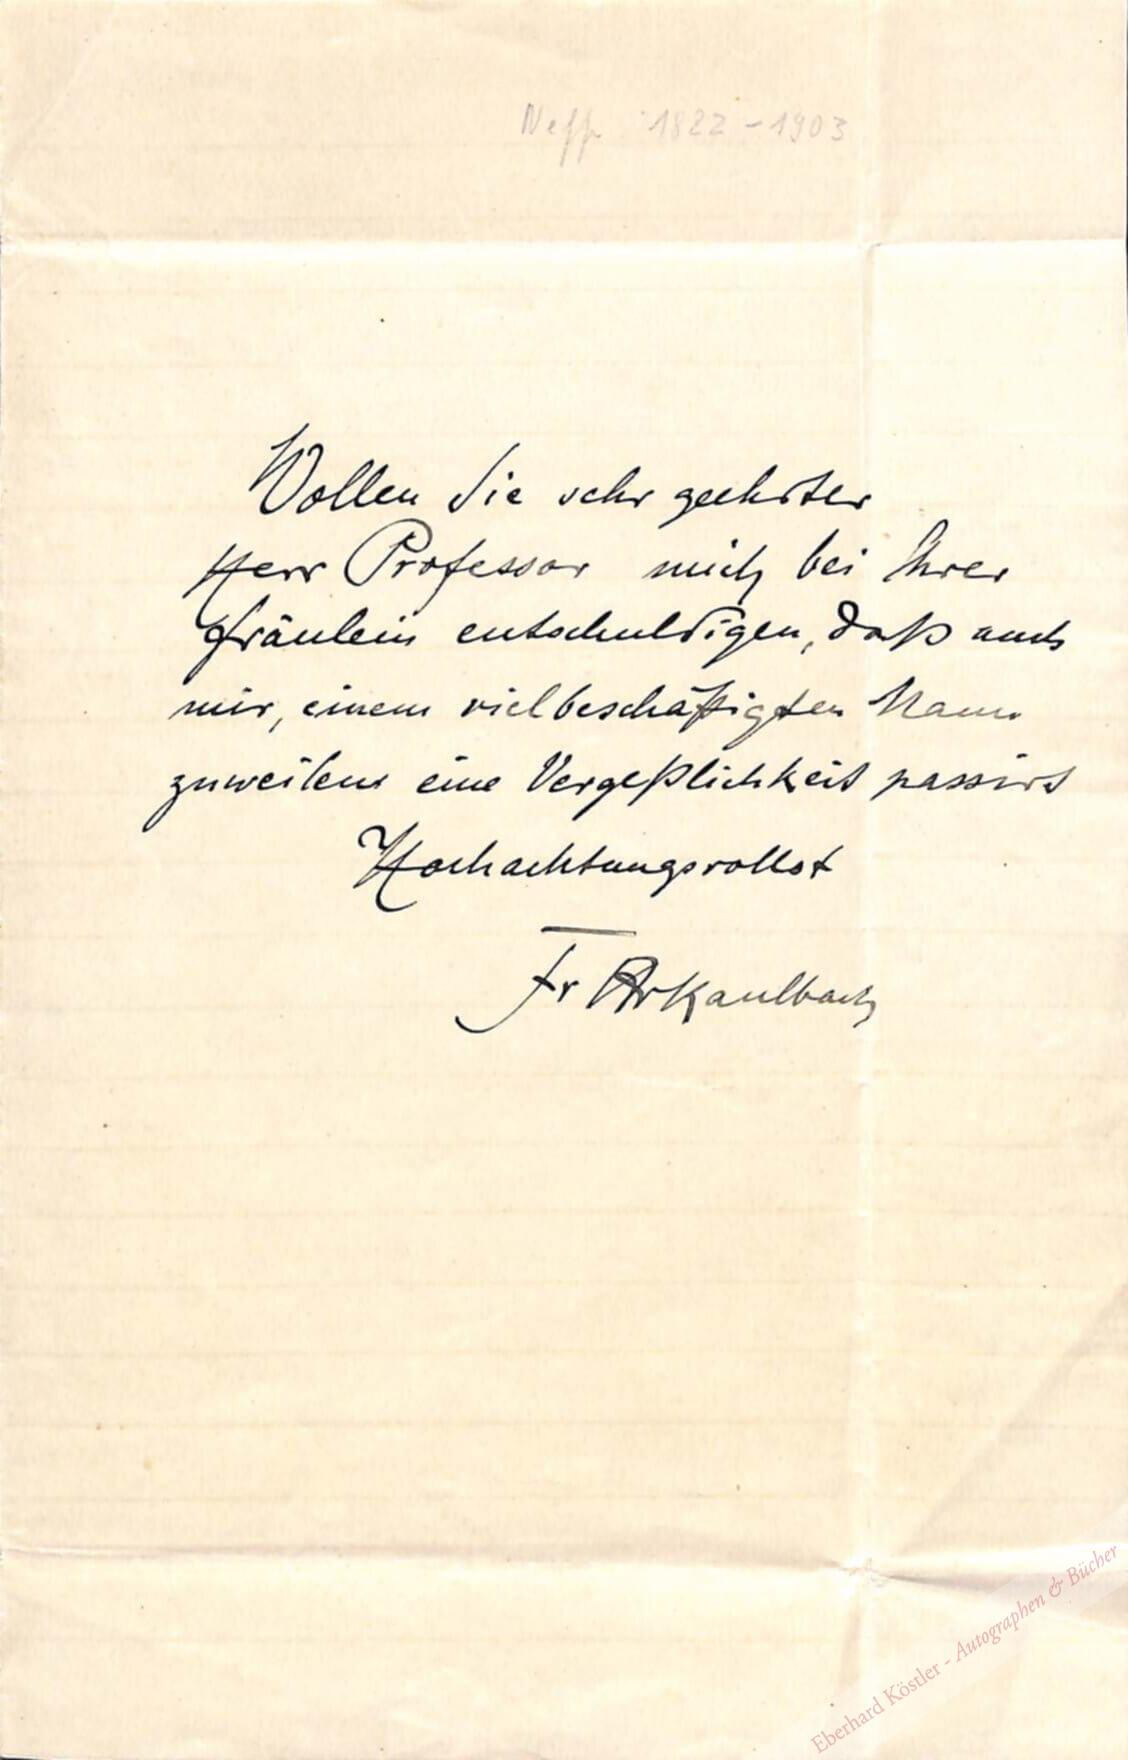 Neffe 1822 - 1903
Wollen Sie sehr geehrter
Herr Professor mich bei Ihrer
Fräulein entschuldigen, daß auch
mir, einem vielbeschäftigten Mann
zuweilen eine Vergeßlichkeit passirt
Hochachtungsvollst
Fr Kaulbach
Eberhard Köstler - Autographen & Bücher